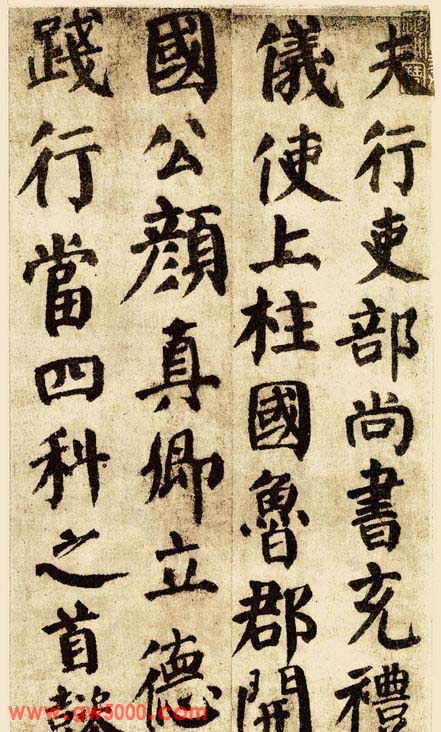 夫行吏部尚書充禮
儀使上柱國魯郡開
國公顏真卿立德
踐行當四科之首懿
www.gw5000.com